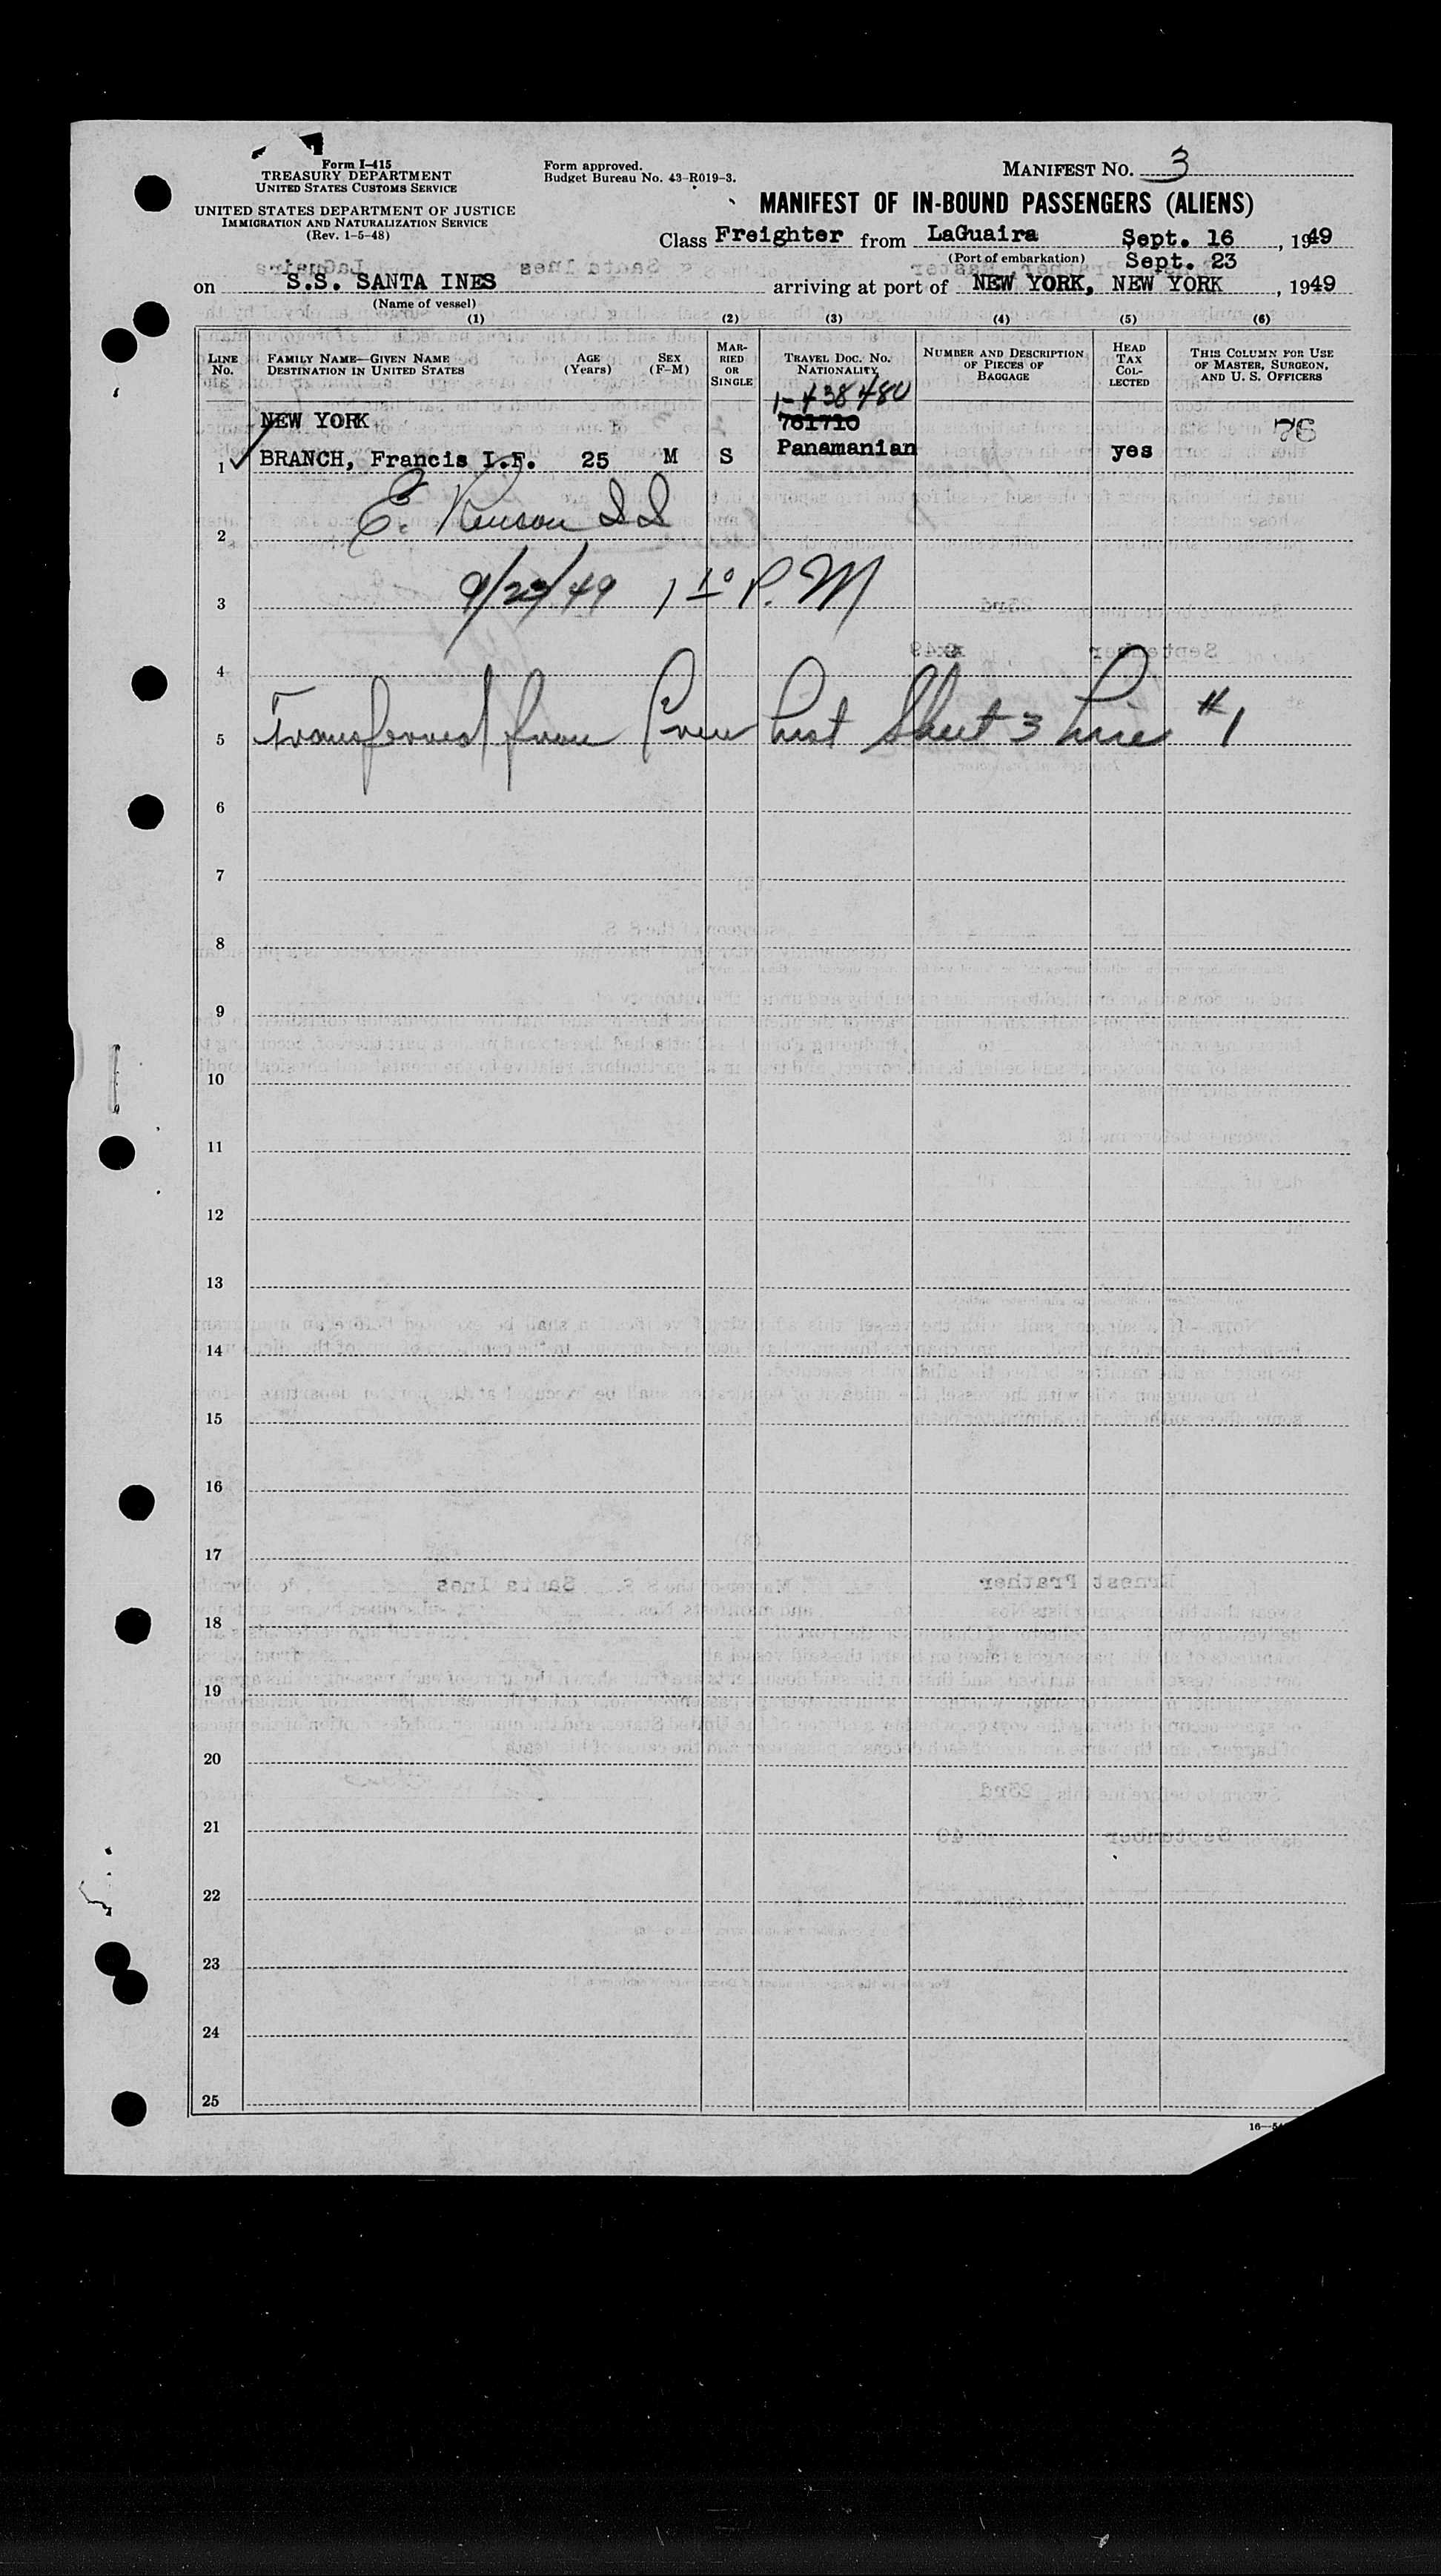 Form I-415
TREASURY DEPARTMENT
UNITED STATES CUSTOMS SERVICE
UNITED STATES DEPARTMENT OF JUSTICE
IMMIGRATION AND NATURALIZATION SERVICE
(Rev. 1-5-48)
Form approved.
Budget Bureau No. 43-R019-3.
MANIFEST NO. 3
MANIFEST OF IN-BOUND PASSENGERS (ALIENS)
Class Freighter from LaGuaira Sept. 16, 1949
(Port of embarkation) Sept. 23
on S.S. SANTA INES arriving at port of NEW YORK, NEW YORK, 1949
(Name of vessel)
(1) (2) (3) (4) (5) (6)
LINE No. FAMILY NAME—GIVEN NAME DESTINATION IN UNITED STATES AGE (Years) SEX (F-M) MARRIED OR SINGLE TRAVEL DOC. NO. NATIONALITY NUMBER AND DESCRIPTION OF PIECES OF BAGGAGE HEAD TAX COLLECTED THIS COLUMN FOR USE OF MASTER, SURGEON, AND U. S. OFFICERS
1-438480
NEW YORK 761710 76
1 BRANCH, Francis I.F. 25 M S Panamanian yes
2 E.
3 9/23/49 1 10 P.M
4
5 Transferred from Crew List Sheet 3 Line #1
6
7
8
9
10
11
12
13
14
15
16
17
18
19
20
21
22
23
24
25